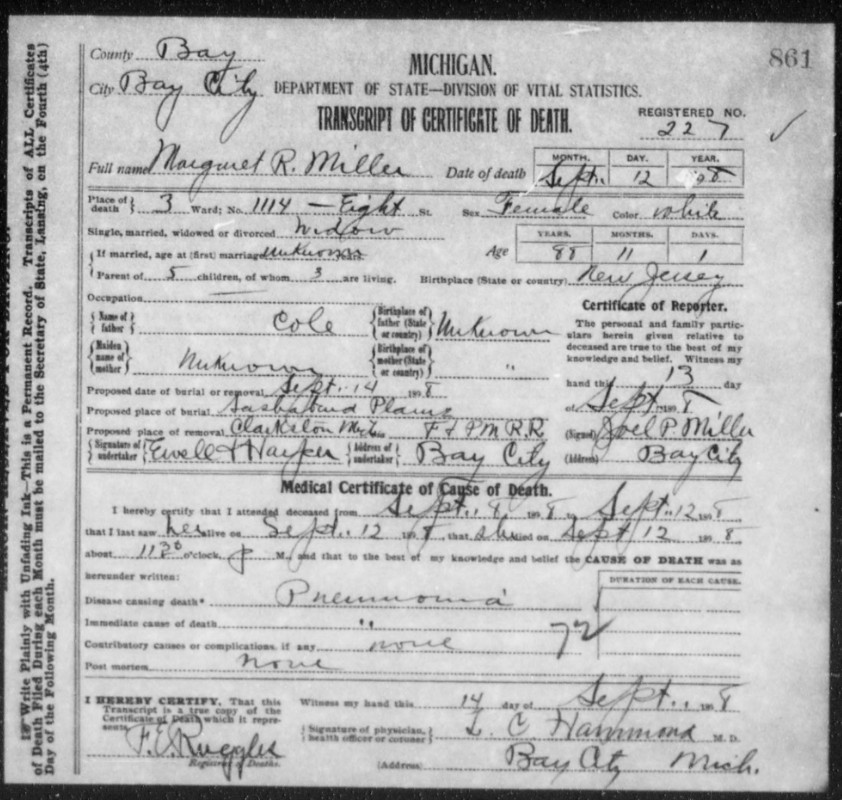 County Bay
861
MICHIGAN.
City Bay City
DEPARTMENT OF STATE—DIVISION OF VITAL STATISTICS.
TRANSCRIPT OF CERTIFICATE OF DEATH.
REGISTERED NO.
227
Full name Margaret R. Miller Date of death
MONTH. DAY. YEAR.
Sept. 12
Place of death 3 Ward; No. 1114 — Eight St. Sex Female Color white
Single, married, widowed or divorced Widow
If married, age at (first) marriage unknown years
Age
YEARS. MONTHS. DAYS.
88 11 1
Parent of 5 children, of whom 3 are living. Birthplace (State or country) New Jersey
Occupation
Name of father Cole
Birthplace of father (State or country) Unknown
Maiden name of mother Unknown
Birthplace of mother (State or country) "
Certificate of Reporter.
The personal and family partic-
ulars herein given relative to
deceased are true to the best of my
knowledge and belief. Witness my
hand this 13 day
of Sept. 189 8
(Signed) Joel P. Miller
(Address) Bay City
Proposed date of burial or removal Sept. 14 189 8
Proposed place of burial Sashabaud Plains
Proposed place of removal Clarkston Mich F & P M R.R.
Signature of undertaker Ewell & Harper Address of undertaker Bay City
Medical Certificate of Cause of Death.
I hereby certify that I attended deceased from Sept. 8, 189 8 to Sept. 12 189 8
that I last saw her alive on Sept. 12 189 8, that she died on Sept 12 189 8
about 11 30 o'clock, P M., and that to the best of my knowledge and belief the CAUSE OF DEATH was as
hereunder written:
DURATION OF EACH CAUSE.
Disease causing death* Pneumonia
Immediate cause of death "
72
Contributory causes or complications, if any none
Post mortem none
I HEREBY CERTIFY, That this
Transcript is a true copy of the
Certificate of Death which it repre-
sents.
F. E. Ruggles
Registrar of Deaths.
Witness my hand this 14 day of Sept., 189 8
Signature of physician, health officer or coroner L. C. Hammond M. D.
(Address) Bay City Mich.
Write Plainly with Unfading Ink—This is a Permanent Record. Transcripts of ALL Certificates
of Death Filed During each Month must be mailed to the Secretary of State, Lansing, on the Fourth (4th)
Day of the Following Month.